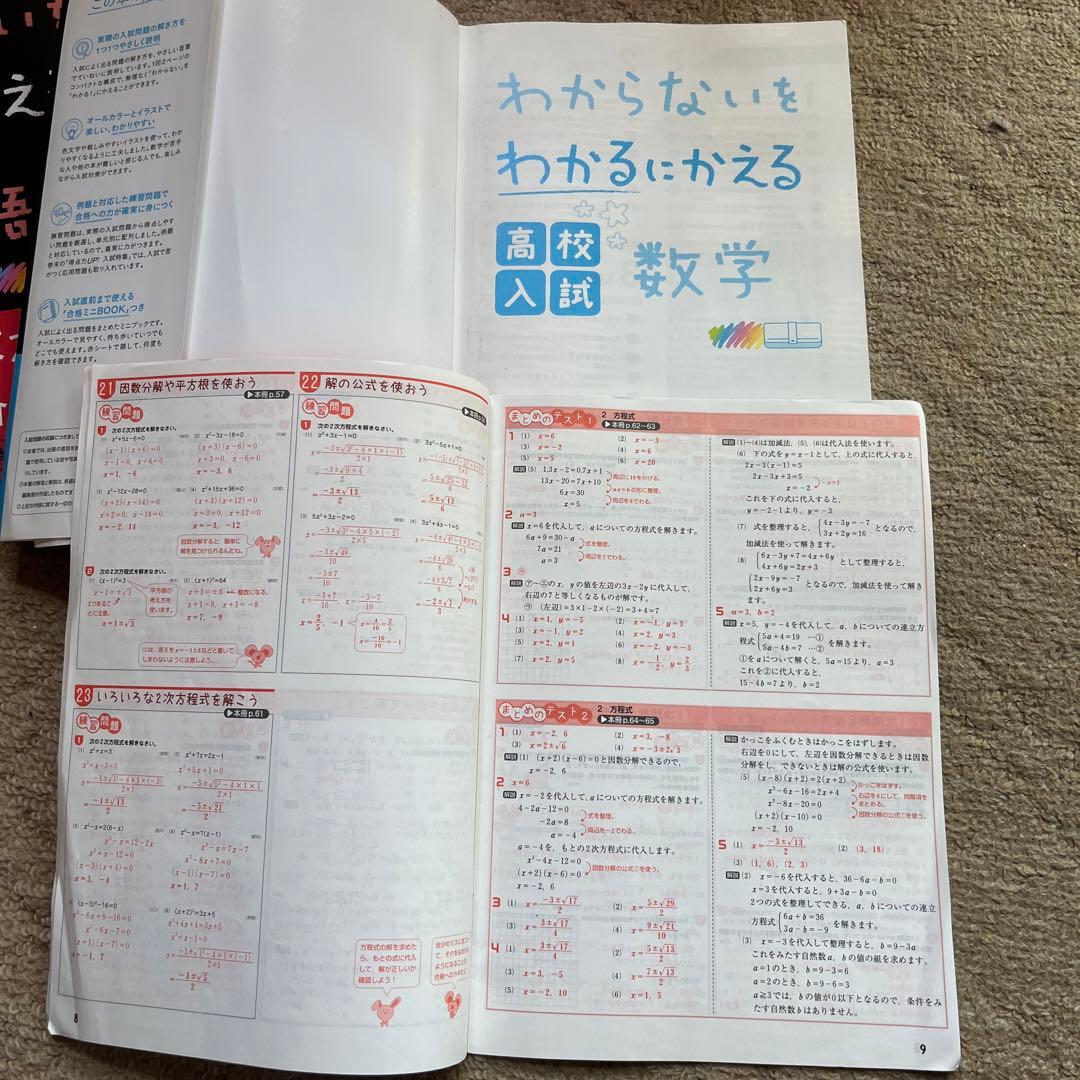 実際の入試問題の解き方を
1つ1つやさしく説明
入試によく出る問題の解き方を、やさしい言葉
でていねいに説明しています。1回2ページの
コンパクトな構成で、無理なく「わからない」を
「わかる！」にかえることができます。
オールカラーとイラストで
楽しい、わかりやすい
色文字や親しみやすいイラストを使って、わか
りやすくなるように工夫しました。数学が苦手
な人や他の本が難しいと感じる人でも、楽しみ
ながら入試対策ができます。
例題と対応した練習問題で
合格への力が確実に身につく
練習問題は、実際の入試問題から得点しやす
い問題を厳選し、単元別に配列しました。例題
と対応しているので、着実に力がつきます。
巻末の「得点力UP! 入試特集」では、入試で差
がつく応用問題も取り入れています。
入試直前まで使える
「合格ミニBOOK」つき
入試によく出る問題をまとめたミニブックです。
オールカラーで見やすく、持ち歩いていつでも
どこでも使えます。赤シートで隠して、何度も
解き方を確認できます。
わからないを
わかるにかえる
高校
入試
数学
21 因数分解や平方根を使おう
▶本冊p.57
練習問題
1 次の2次方程式を解きなさい。
(1) x²+5x-6=0
(x-1)(x+6)=0
x-1=0, x+6=0
x=1, -6
(2) x²-3x-18=0
(x+3)(x-6)=0
x+3=0, x-6=0
x=-3, 6
(3) x²-12x-28=0
(x+2)(x-14)=0
x+2=0, x-14=0
x=-2, 14
(4) x²+15x+36=0
(x+3)(x+12)=0
x+3=0, x+12=0
x=-3, -12
因数分解すると、簡単に
解を見つけられるんだね。
2 次の2次方程式を解きなさい。
(1) (x-1)²=3
x-1=±√3
2つあるこ
とに注意。
x=1±√3
平方根の
考え方を
使います。
(2) (x+1)²=64
x+1=±8 整数になる。
x+1=8, x+1=-8
x=7, -9
(2)は、答えをx=-1±8などと書いて
しまわないように注意しよう。
22 解の公式を使おう
練習問題
1 次の2次方程式を解きなさい。
(1) x²+3x-1=0
x=-3±√3²-4×1×(-1)/2×1
=-3±√9+4/2
=-3±√13/2
(2) 3x²-5x+1=0
=5±√25-12/6
=5±√13/6
(3) 5x²+3x-2=0
x=-3±√3²-4×5×(-2)/2×5
=-3±√49/10
=-3±7/10
x=-3+7/10, x=-3-7/10
x=2/5, -1
x=4/10=2/5
x=-10/10=-1
(4) 3x²+4x-1=0
=-4±√28/6
=-4±2√7/6
=-2±√7/3
23 いろいろな2次方程式を解こう
▶本冊p.61
練習問題
1 次の2次方程式を解きなさい。
(1) x²+x=3
x²+x-3=0
x=-1±√1²-4×1×(-3)/2×1
=-1±√13/2
(2) x²+7x=2x-1
x²+5x+1=0
x=-5±√5²-4×1×1/2×1
=-5±√21/2
(3) x²-x=2(6-x)
x²-x=12-2x
x²+x-12=0
(x-3)(x+4)=0
x=3, -4
(4) x²-x=7(x-1)
x²-x=7x-7
x²-8x+7=0
(x-1)(x-7)=0
x=1, 7
(x-3)²-16=0
x²-6x+9-16=0
x²-6x-7=0
(x+1)(x-7)=0
x=-1, 7
(6) (x+2)²=3x+5
x²+4x+4=3x+5
x²+x-1=0
x=-1±√1²-4×1×(-1)/2×1
=-1±√5/2
方程式の解を求めた
ら、もとの式に代入
して、解が正しいか
確認しよう！
8
まとめのテスト1
2 方程式
▶本冊p.62~63
1 (1) x=6 (2) x=-3
(3) x=-2 (4) x=6
(5) x=5 (6) x=20
解説 (5) 1.3x-2=0.7x+1
13x-20=7x+10
6x=30
x=5
両辺に10をかける。
ax=bの形に整理。
両辺を6でわる。
2 a=3
解説 x=6を代入して、aについての方程式を解きます。
6a+9=30-a
7a=21
a=3
式を整理。
両辺を7でわる。
3 ㋒
解説 ㋐~㋓のx, yの値を左辺の3x-2yに代入して、
右辺の7と等しくなるものが解です。
㋒ (左辺)=3×1-2×(-2)=3+4=7
4 (1) x=1, y=-5 (2) x=-1, y=3
(3) x=-1, y=2 (4) x=2, y=3
(5) x=2, y=1 (6) x=-2, y=-3
(7) x=2, y=5 (8) x=-1/2, y=2/3
解説 (1)~(4)は加減法、(5), (6)は代入法を使います。
(6) 下の式をy=x-1として、上の式に代入すると、
2x-3(x-1)=5
2x-3x+3=5
x=-2
-x=2
これを下の式に代入すると、
y=-2-1より、y=-3
(7) 式を整理すると、{4x-3y=-7
3x+2y=16 となるので、
加減法を使って解きます。
(8) {6x-3y+7=4x+6y
4x+6y=2x+3 として整理し、
{2x-9y=-7
2x+6y=3 となるので、加減法を使って解き
ます。
5 a=3, b=2
解説 x=5, y=-4を代入して、a, bについての連立方
程式{5a+4=19 …①
5a-4b=7 …② を解きます。
①をaについて解くと、5a=15より、a=3
これを②に代入すると、
15-4b=7より、b=2
まとめのテスト2
2 方程式
▶本冊p.64~65
1 (1) x=-2, 6 (2) x=3, -8
(3) x=2±√6 (4) x=-3±2√3
解説 (1) (x+2)(x-6)=0と因数分解できるので、
x=-2, 6
2 x=6
解説 x=-2を代入して、aについての方程式を解きます。
4-2a-12=0
-2a=8
a=-4
式を整理。
両辺を-2でわる。
a=-4を、もとの2次方程式に代入します。
x²-4x-12=0
(x+2)(x-6)=0
x=-2, 6
因数分解の公式①を使う。
3 (1) x=-3±√17/2 (2) x=5±√29/2
(3) x=3±√17/4 (4) x=9±√21/10
4 (1) x=3±√17/4 (2) x=5±√13/2
(3) x=3, -5 (4) x=7±√13/2
(5) x=-2, 10 (6) x=1, 5
解説 かっこをふくむときはかっこをはずします。
右辺を0にして、左辺を因数分解できるときは因数
分解をし、できないときは解の公式を使います。
(5) (x-8)(x+2)=2(x+2)
x²-6x-16=2x+4
x²-8x-20=0
(x+2)(x-10)=0
x=-2, 10
かっこをはずす。
右辺を0にして、同類項を
まとめる。
因数分解の公式①を使う。
5 (1) x=-3±√13/2 (2) (3, 18)
(3) (1, 6), (2, 3)
解説 (2) x=-6を代入すると、36-6a-b=0
x=3を代入すると、9+3a-b=0
2つの式を整理してできる、a, bについての連立
方程式{6a+b=36
3a-b=-9 を解きます。
(3) x=-3を代入して整理すると、b=9-3a
これをみたす自然数a, bの値の組を求めます。
a=1のとき、b=9-3=6
a=2のとき、b=9-6=3
a≧3では、bの値が0以下となるので、条件をみ
たす自然数bはありません。
9